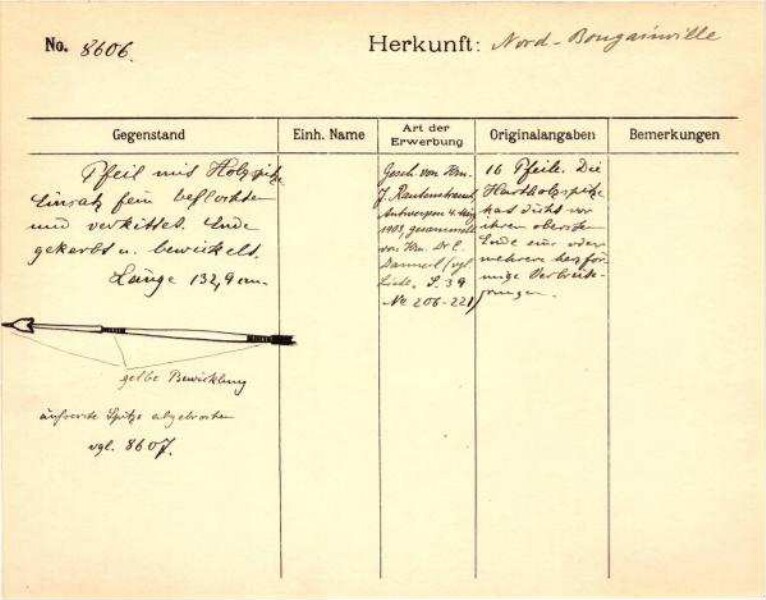 No. 8606.
Herkunft: Nord-Bougainville
Gegenstand
Einh. Name
Art der
Erwerbung
Originalangaben
Bemerkungen
Pfeil mit Holzspitze
Einsatz fein beflochten
und verkittet. Ende
gekerbt u. bewickelt.
Länge 132,9 cm.
gelbe Bewicklung
äußerste Spitze abgebrochen
vgl. 8607.
Gesch. von Hrn.
J. Rautenstrauch,
Antwerpen 4.
1903, gesammelt
von Hrn. Dr.
(vgl.
Liste, S. 39
No 206-221)
16 Pfeile. Die
Hartholzspitze
hat dicht vor
ihrem obersten
Ende eine oder
mehrere herzför-
mige Verbreite-
rungen.